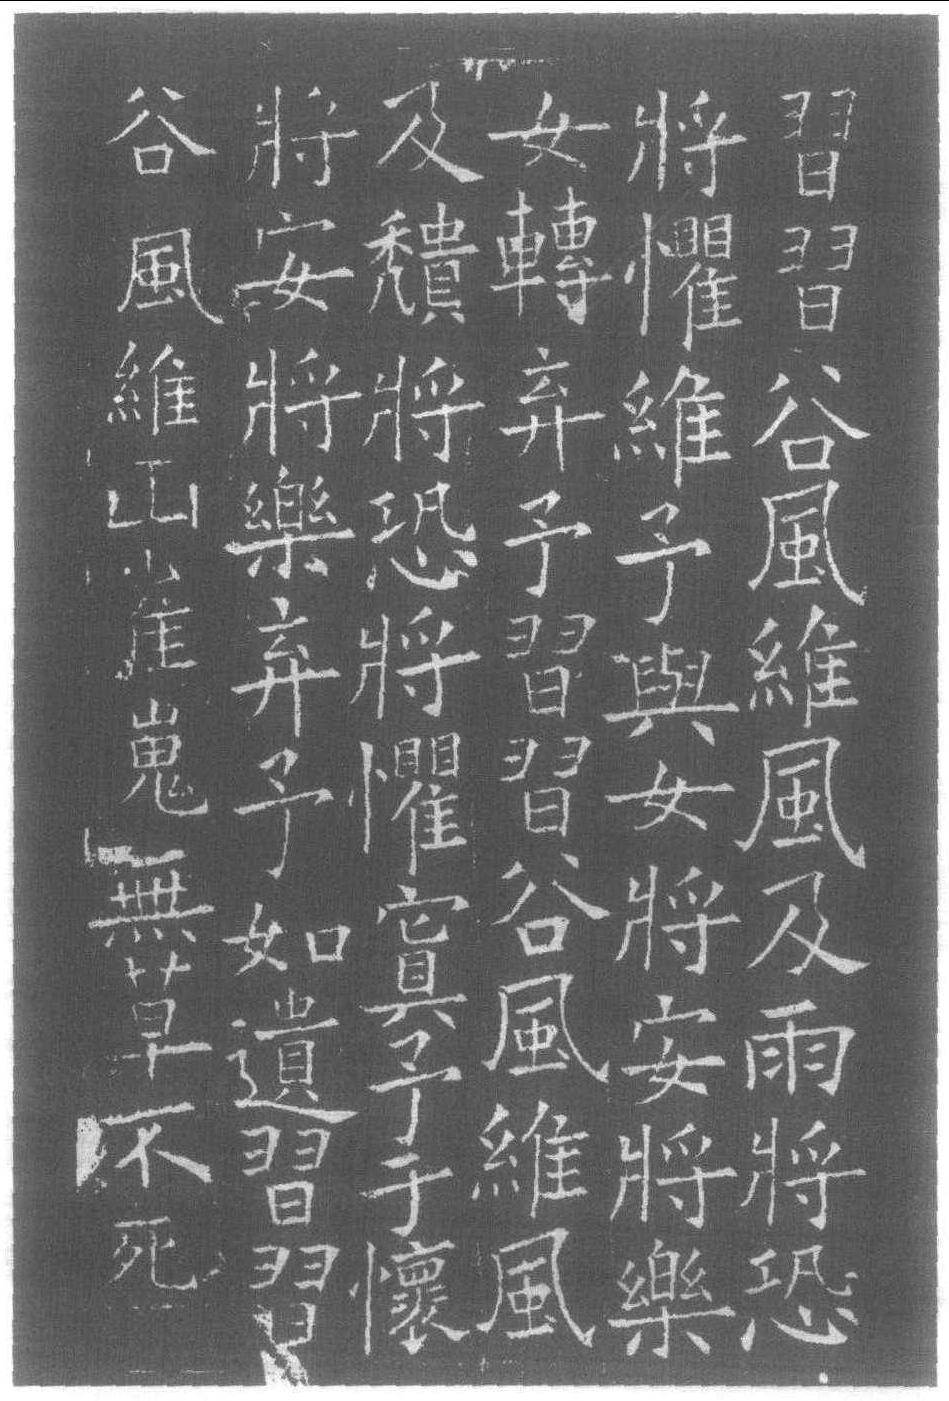 習習谷風維風及雨將恐
將懼維予與女將安將樂
女轉弃予習習谷風維風
及穨將恐將懼寘予于懷
將安將樂弃予如遺習習
谷風維山崔嵬無草不死